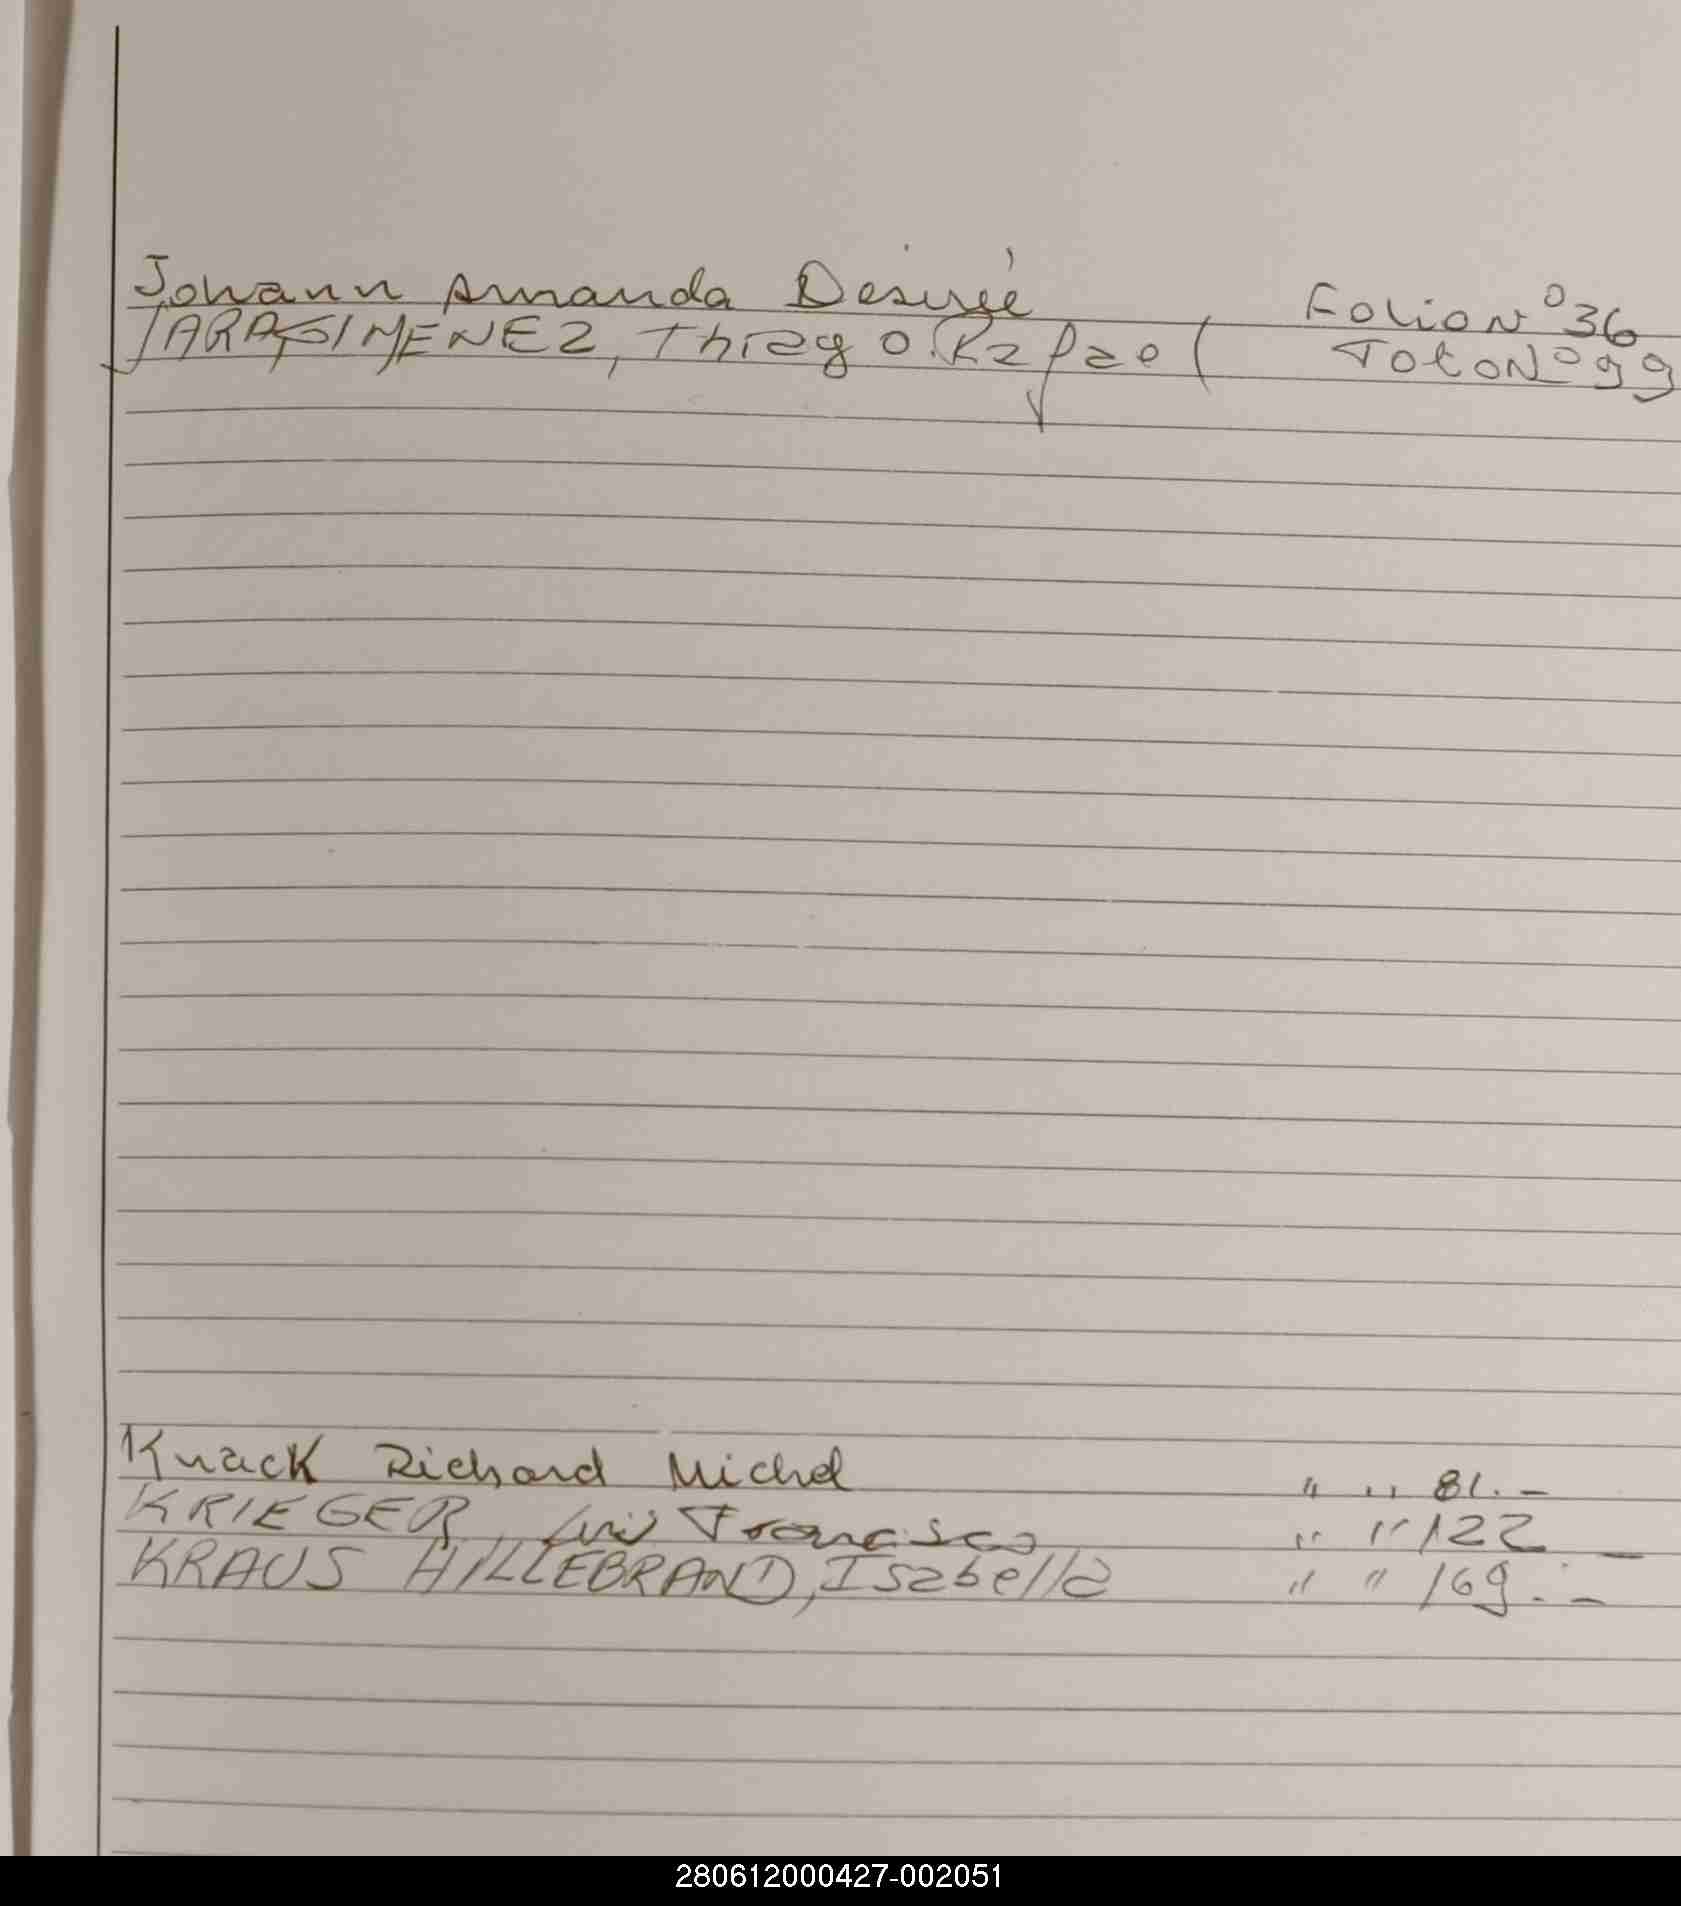 Johann Amanda Desireé Folio Nº 36
JARA GIMENEZ, Thiago Rafael Folio Nº 99
Knack Richard Michel " " 81.-
KRIEGER, Luis Francisco " " 122 -
KRAUS HILLEBRAND, Isabella " " 169.-
280612000427-002051